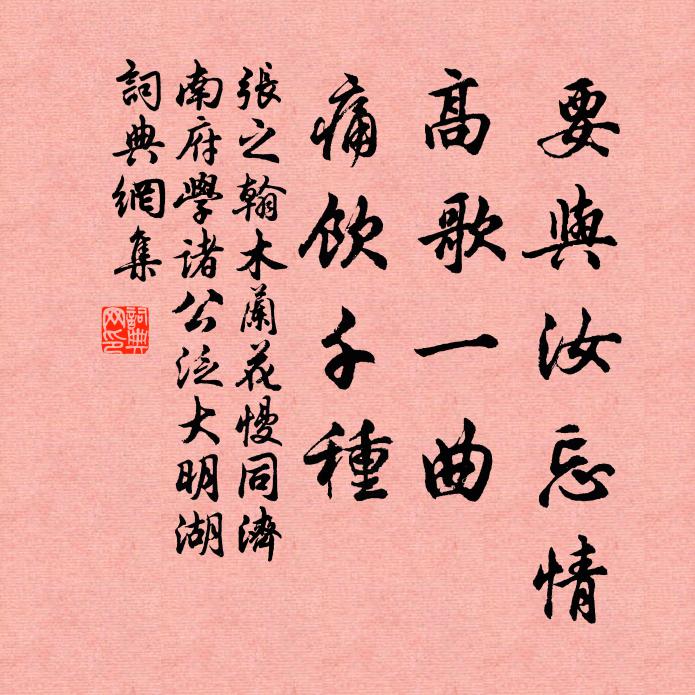 要與汝忘情
高歌一曲
痛飲千種
張之翰木蘭花慢同濟
南府學諸公泛大明湖
詞典網集
詞典
网印